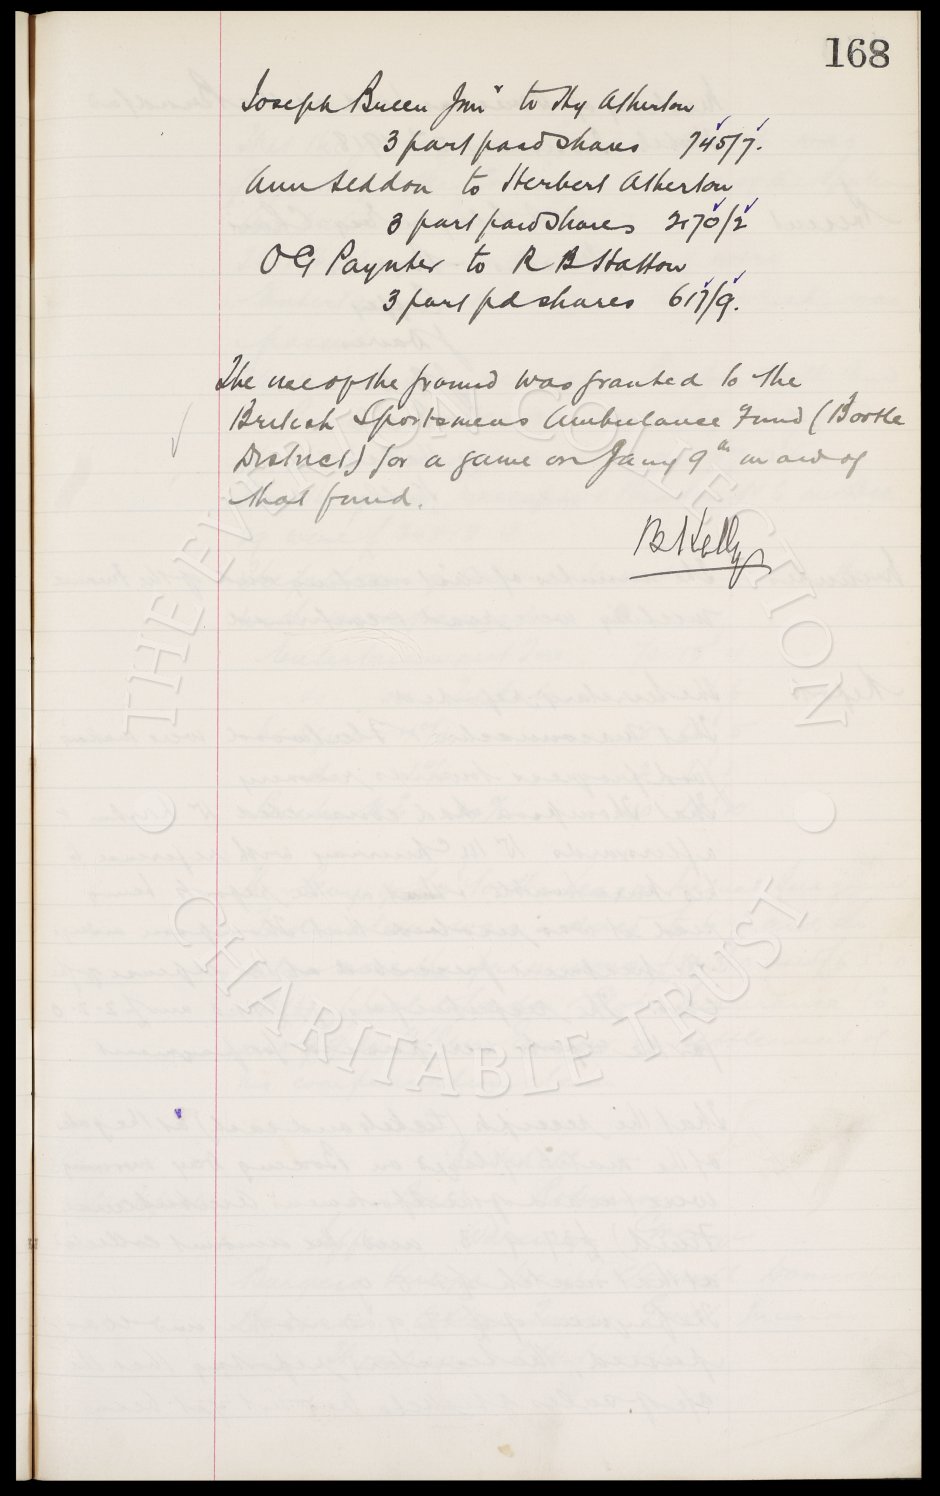 168
Joseph Breen Junr to Hy Atherton
3 part paid shares 745/7.
Ann Seddon to Herbert Atherton
3 part paid shares 2170/2
O G Paynter to R B Hatton
3 part pd shares 617/9.
The use of the ground was granted to the
British Sportsmens Ambulance Fund (Bootle
District) for a game on Jany 9th in aid of
that fund.
B Kelly
THE EVERTON COLLECTION
CHARITABLE TRUST